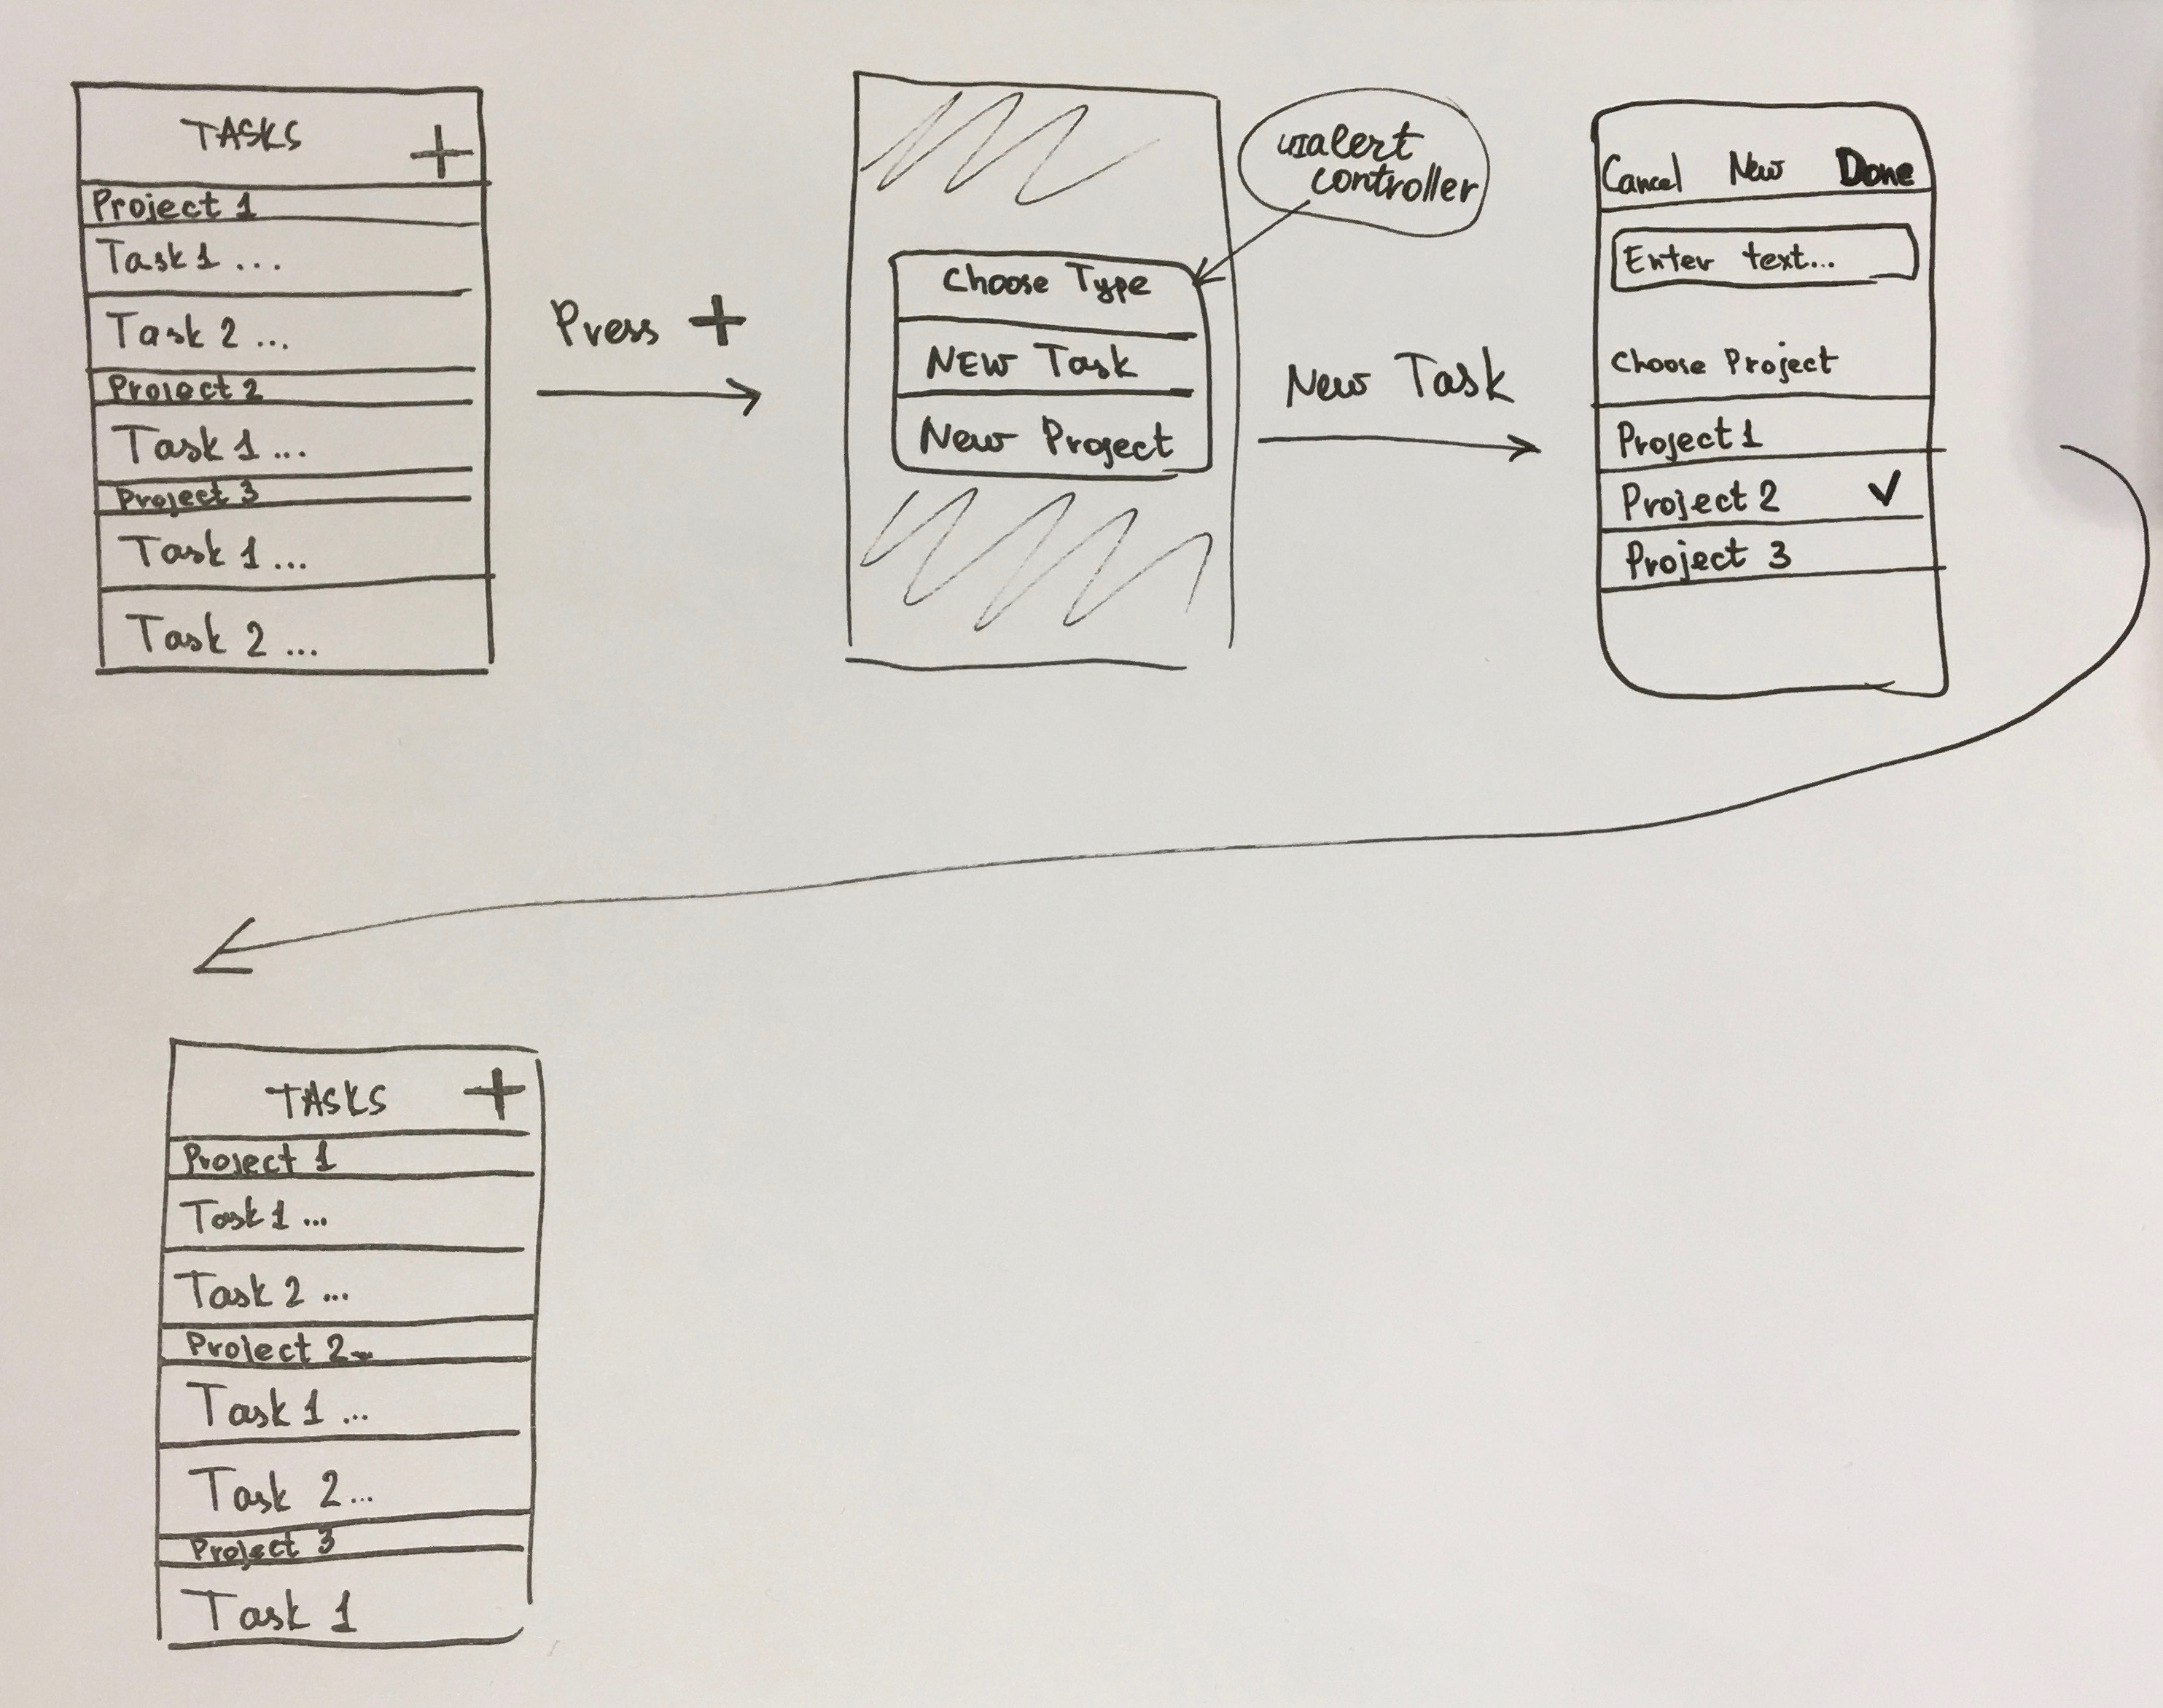 TASKS +
Project 1
Task 1 ...
Task 2 ...
Project 2
Task 1 ...
Project 3
Task 1 ...
Task 2 ...
Press +
Choose Type
NEW Task
New Project
UIalert
controller
New Task
Cancel New Done
Enter text...
Choose Project
Project 1
Project 2 ✓
Project 3
TASKS +
Project 1
Task 1 ...
Task 2 ...
Project 2
Task 1 ...
Task 2 ...
Project 3
Task 1